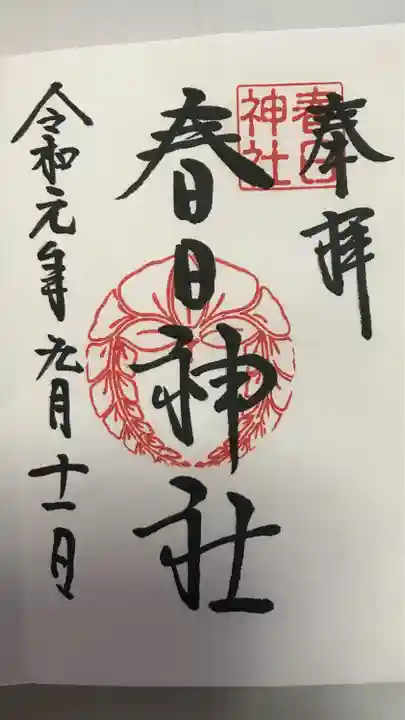 奉拝
春日神社
春日神社
令和元年九月十一日